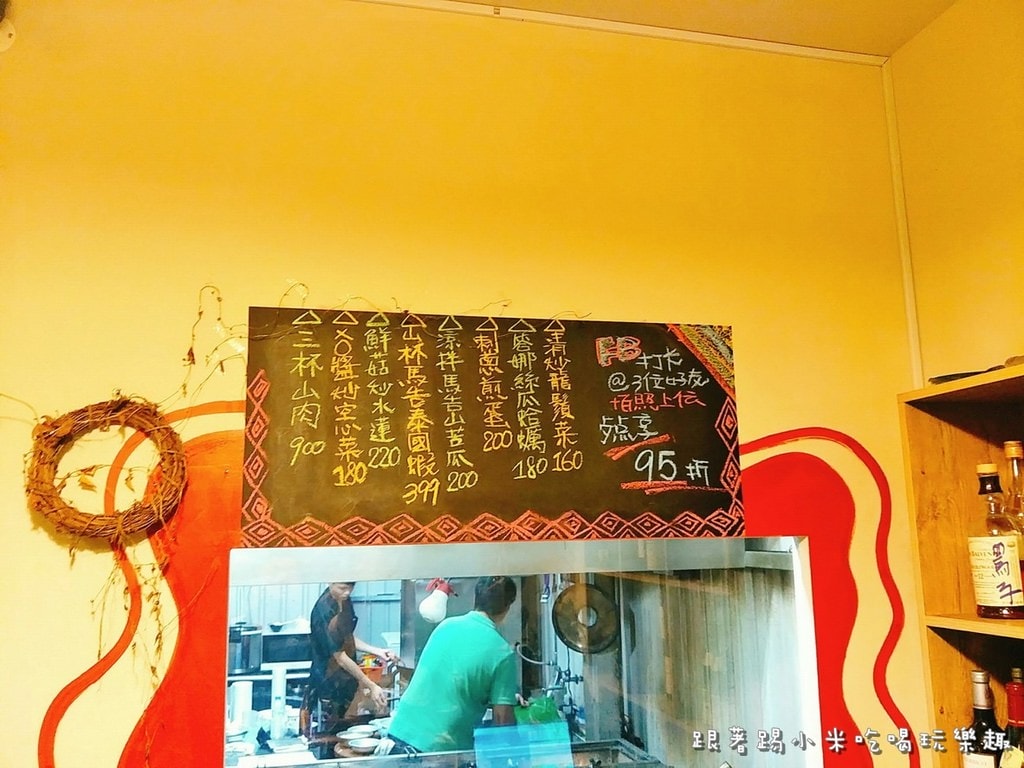 FB打卡
@3位好友
拍照上傳
點享
95折
清炒龍鬚菜 160
唇娜絲瓜蛤蠣 180
刺蔥煎蛋 200
涼拌馬告山苦瓜 200
山林馬告泰國蝦 399
鮮菇炒水蓮 220
XO醬炒空心菜 180
三杯山肉 900
跟著踢小米吃喝玩樂趣